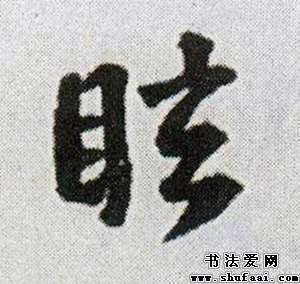 眩
书法爱网
www.shufaai.com